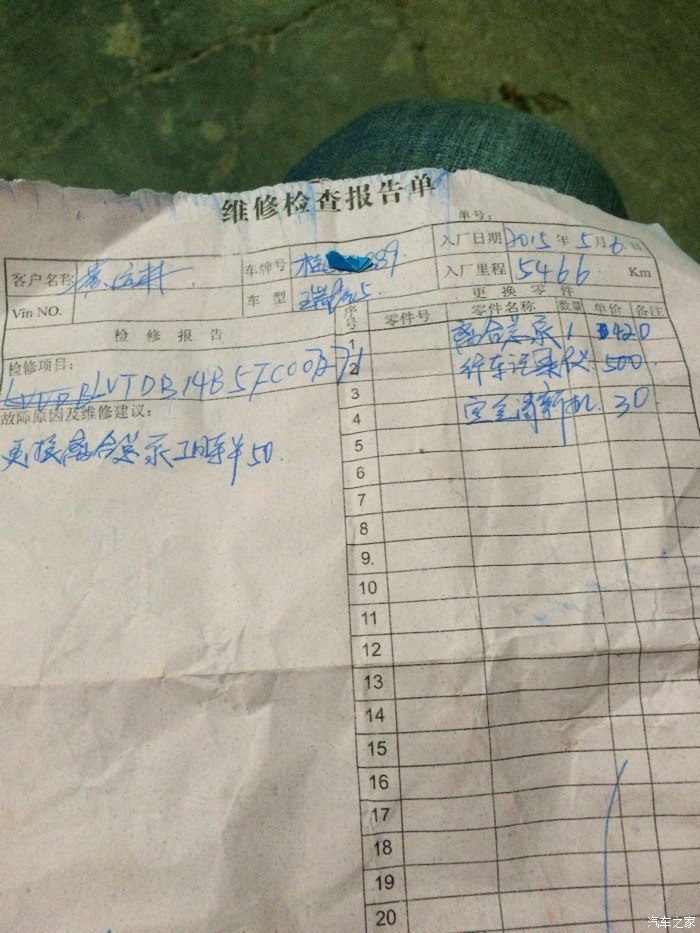 维修检查报告单
单号:
客户名称
车牌号 桂 89
入厂日期 2015年5月6日
Vin NO.
车型 瑞虎5
入厂里程 5466 Km
检修报告
序号 更换零件
零件号 零件名称 数量 单价 备注
检修项目:
LVTDB14B5FC00
故障原因及维修建议:
更换离合总泵工时洋50.
1 离合总泵 1 420
2 行车记录仪 500
3
4 空气清新机. 30
5
6
7
8
9.
10
11
12
13
14
15
16
17
18
19
20
汽车之家